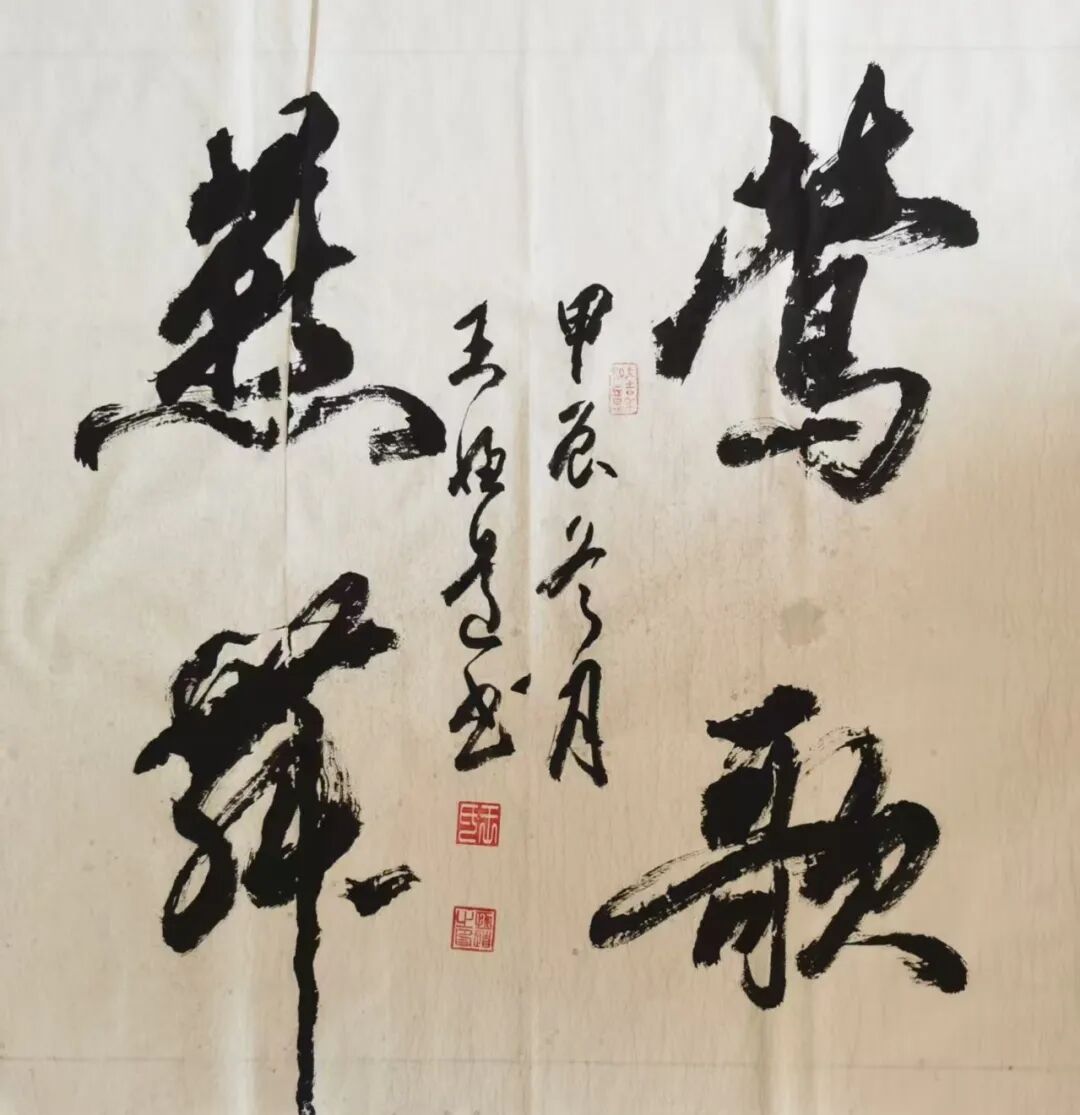 莺歌
燕舞
甲辰冬月
王 道书